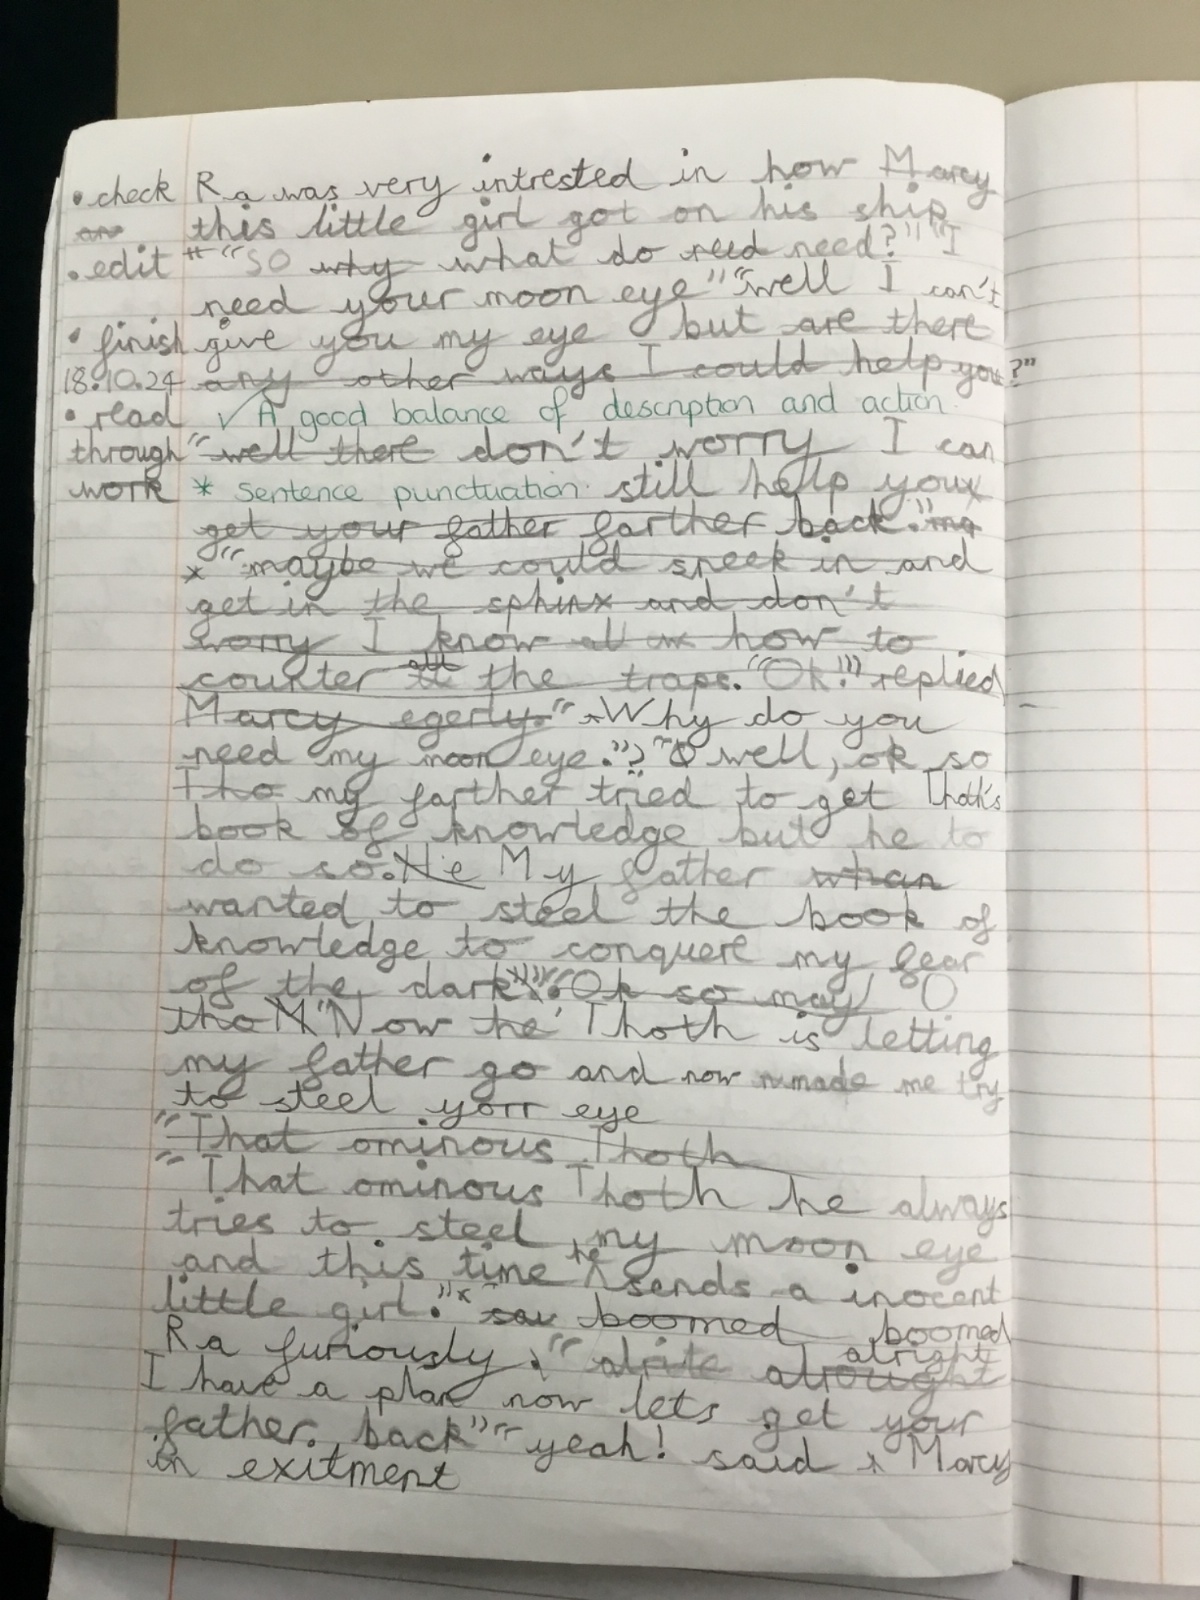 • check Ra was very intrested in how Marcy
are this little girl got on his ship
• edit * "so why what do need need?" "I
need your moon eye" "well I can't
• finish give you my eye but are there
18.10.24 any other ways I could help you?"
• read ✓ A good balance of description and action.
through "well there don't worry I can
work * sentence punctuation. still help you
get your father farther back."
* "maybe we could sneek in and
get in the sphinx and don't
worry I know all how to
counter all the traps. "Ok!" replied
Marcy egerly." Why do you
need my moon eye."? "O well, ok so
Tho my farther tried to get Thoth's
book of knowledge but he to
do so. He My father whan
wanted to steel the book of
knowledge to conquere my fear
of the dark". "Ok so may O
tho M N ow he Thoth is letting
my father go and now made me try
to steel yorr eye
"That ominous Thoth
"That ominous Thoth he always
tries to steel my moon eye
and this time he sends a inocent
little girl." sau boomed boomed
Ra furiously. "alrite alrought alright
I have a plan now lets get your
father. back" " yeah! said Marcy
in exitment